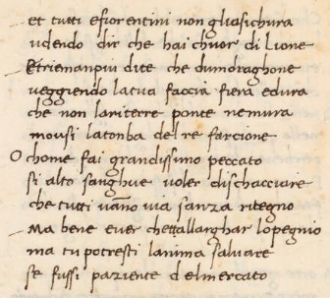 et tutti efiorentini non gliasichura
udendo dir che hai chuor di lione
Etriemanpiu di te che dumdraghone
veggiendo latua faccia fiera edura
che non lariterre ponte nemura
mousi latonba del re farcione
O chome fai grandissimo peccato
si alto sanghue voler dischacciare
che tutti vāno via sanza ritegno
Ma bene ever chettallarghar lopegnio
ma tu potresti lanima salvare
se fussi paziente delmercato